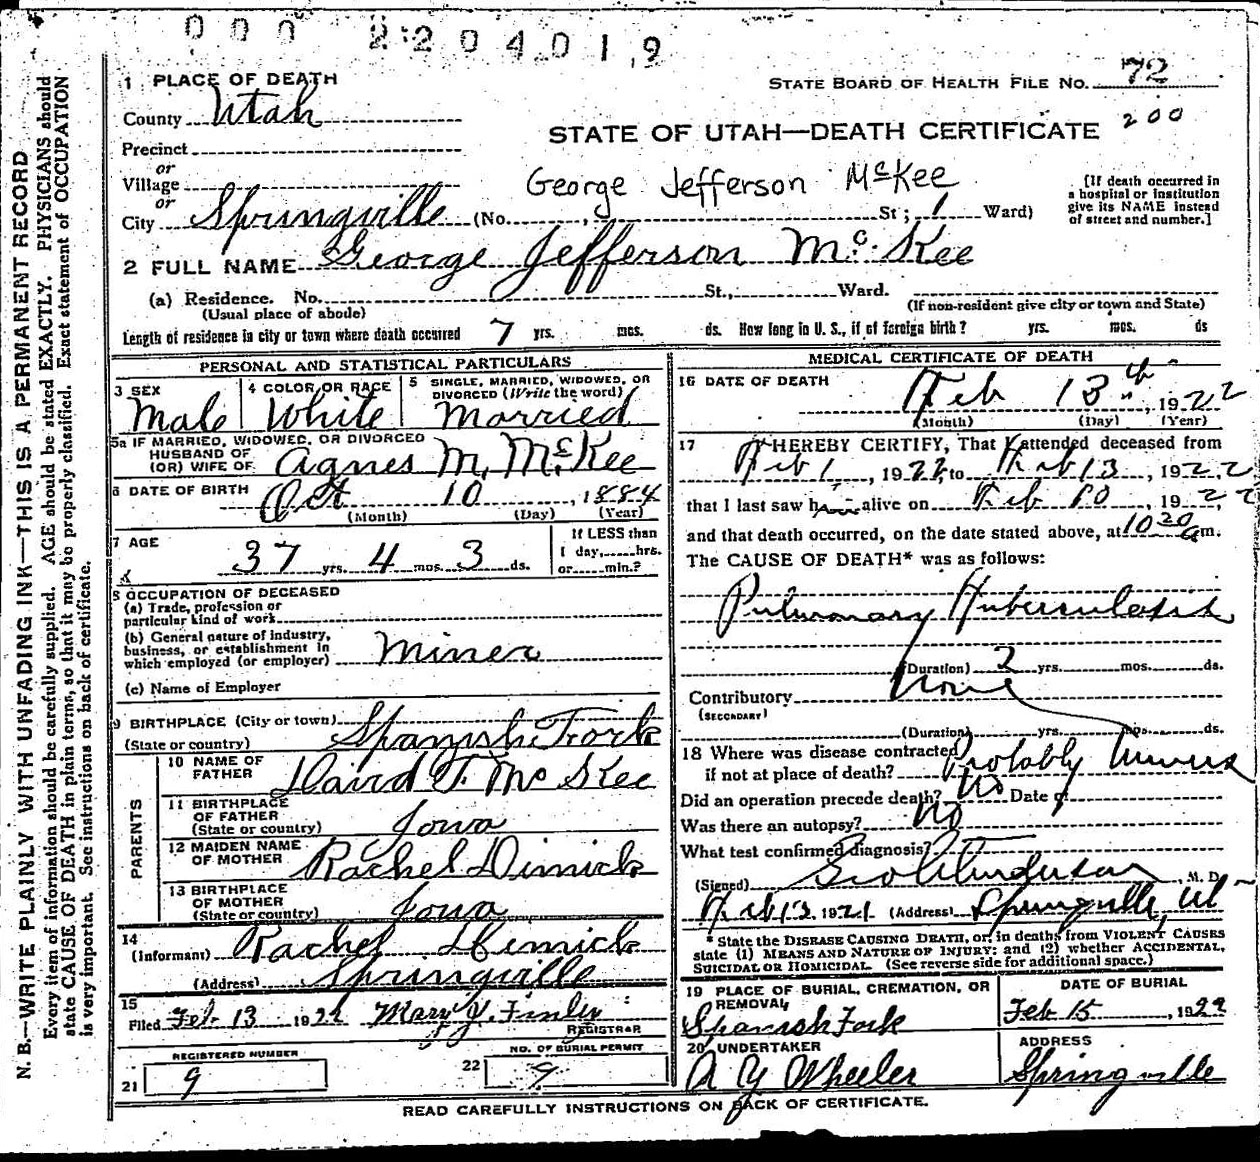 000 2204019
1 PLACE OF DEATH
STATE BOARD OF HEALTH FILE No. 72
County Utah
200
STATE OF UTAH—DEATH CERTIFICATE
Precinct
or
Village
or
George Jefferson McKee
[If death occurred in a hospital or institution give its NAME instead of street and number.]
City Springville (No. St; 1 Ward)
2 FULL NAME George Jefferson Mc Kee
(a) Residence. No. St., Ward.
(Usual place of abode) (If non-resident give city or town and State)
Length of residence in city or town where death occured 7 yrs. mos. ds. How long in U. S., if of foreign birth? yrs. mos. ds
PERSONAL AND STATISTICAL PARTICULARS
3 SEX
Male
4 COLOR OR RACE
White
5 SINGLE, MARRIED, WIDOWED, OR DIVORCED (Write the word)
Married
5a IF MARRIED, WIDOWED, OR DIVORCED
HUSBAND OF
(OR) WIFE OF Agnes M. McKee
6 DATE OF BIRTH Oct 10, 1884
(Month) (Day) (Year)
7 AGE
37 yrs. 4 mos. 3 ds.
If LESS than
1 day, hrs.
or min.?
8 OCCUPATION OF DECEASED
(a) Trade, profession or
particular kind of work
(b) General nature of industry,
business, or establishment in
which employed (or employer) Miner
(c) Name of Employer
9 BIRTHPLACE (City or town) Spanish Fork
(State or country)
PARENTS
10 NAME OF
FATHER David F. Mc Kee
11 BIRTHPLACE
OF FATHER
(State or country) Iowa
12 MAIDEN NAME
OF MOTHER Rachel Dimick
13 BIRTHPLACE
OF MOTHER
(State or country) Iowa
14
(Informant) Rachel Dimick
(Address) Springville
15
Filed Feb 13 1922 Mary J. Finley
REGISTRAR
REGISTERED NUMBER
21 9
NO. OF BURIAL PERMIT
22 9
MEDICAL CERTIFICATE OF DEATH
16 DATE OF DEATH
Feb 13th, 1922
(Month) (Day) (Year)
17 I HEREBY CERTIFY, That I attended deceased from
Feb 1, 1922, to Feb 13, 1922
that I last saw him alive on Feb 10, 1922
and that death occurred, on the date stated above, at 10 20 a m.
The CAUSE OF DEATH* was as follows:
Pulmonary Tuberculosis
(Duration) 2 yrs. mos. ds.
Contributory None
(SECONDARY)
(Duration) yrs. mos. ds.
18 Where was disease contracted
if not at place of death? Probably
Did an operation precede death? No Date of
Was there an autopsy? No
What test confirmed diagnosis?
(Signed) Geo Anderson M. D.
Feb 13, 1921 (Address) Springville, Ut
* State the DISEASE CAUSING DEATH, or, in deaths from VIOLENT CAUSES
state (1) MEANS AND NATURE OF INJURY; and (2) whether ACCIDENTAL,
SUICIDAL OR HOMICIDAL. (See reverse side for additional space.)
19 PLACE OF BURIAL, CREMATION, OR
REMOVAL
Spanish Fork
DATE OF BURIAL
Feb 15, 1922
20 UNDERTAKER
A Y Wheeler
ADDRESS
Springville
READ CAREFULLY INSTRUCTIONS ON BACK OF CERTIFICATE.
N. B.—WRITE PLAINLY WITH UNFADING INK—THIS IS A PERMANENT RECORD
Every item of information should be carefully supplied. AGE should be stated EXACTLY. PHYSICIANS should
state CAUSE OF DEATH in plain terms, so that it may be properly classified. Exact statement of OCCUPATION
is very important. See instructions on back of certificate.